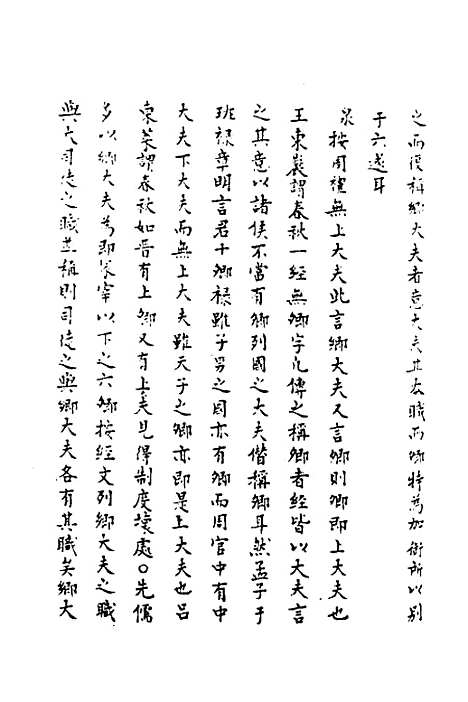 之而復稱鄉大夫者意大夫其本職而卿特為加銜所以別
于六遂耳
泉按周禮無上大夫此言鄉大夫又言卿則卿即上大夫也
王東巖謂春秋一經無卿字凡傳之稱卿者經皆以大夫言
之其意以諸侯不當有卿列國之大夫僭稱卿耳然孟子于
班祿章明言君十卿祿雖子男之國亦有卿而周官中有中
大夫下大夫而無上大夫雖天子之卿亦即是上大夫也呂
東萊謂春秋如晋有上卿又有上大夫見得制度壞處〇先儒
多以鄉大夫為即冢宰以下之六卿按經文列鄉大夫之職
與大司徒之職並稱則司徒之與鄉大夫各有其職矣鄉大